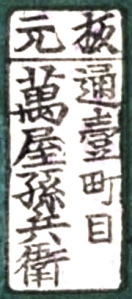 板元
通壹町目
萬屋孫兵衛